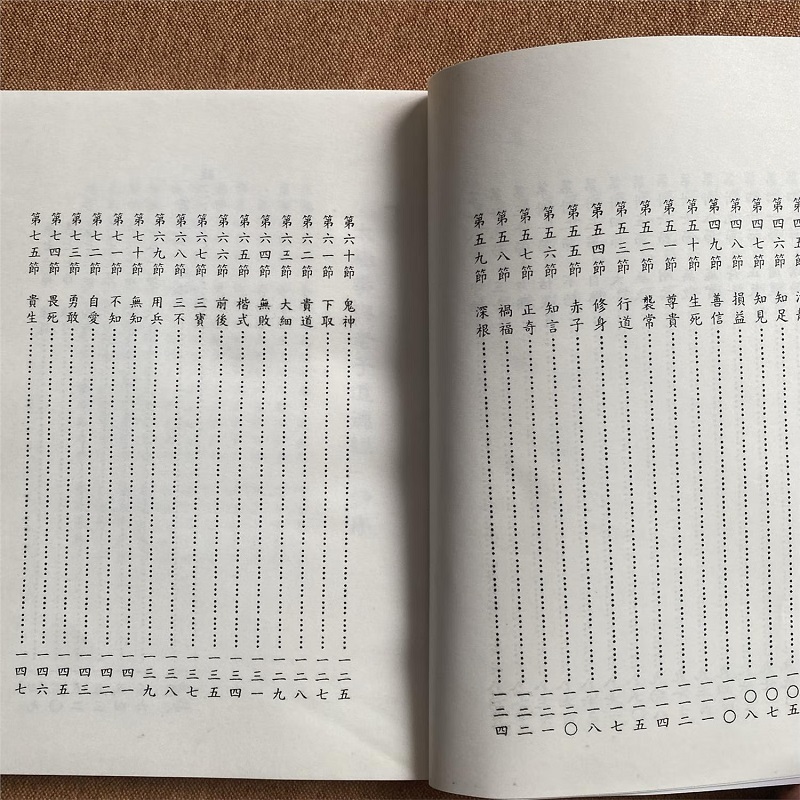 第四六節 知足……一〇五
第四七節 知見……一〇七
第四八節 損益……一〇八
第四九節 善信……一一〇
第五十節 生死……一一一
第五一節 尊貴……一一二
第五二節 襲常……一一四
第五三節 行道……一一五
第五四節 修身……一一七
第五五節 赤子……一一八
第五六節 知言……一二〇
第五七節 正奇……一二一
第五八節 禍福……一二二
第五九節 深根……一二四
第六十節 鬼神……一二五
第六一節 下取……一二七
第六二節 貴道……一二八
第六三節 大細……一二九
第六四節 無敗……一三一
第六五節 楷式……一三四
第六六節 前後……一三五
第六七節 三寶……一三七
第六八節 三不……一三八
第六九節 用兵……一三九
第七十節 無知……一四一
第七一節 不知……一四二
第七二節 自愛……一四三
第七三節 勇敢……一四五
第七四節 畏死……一四六
第七五節 貴生……一四七